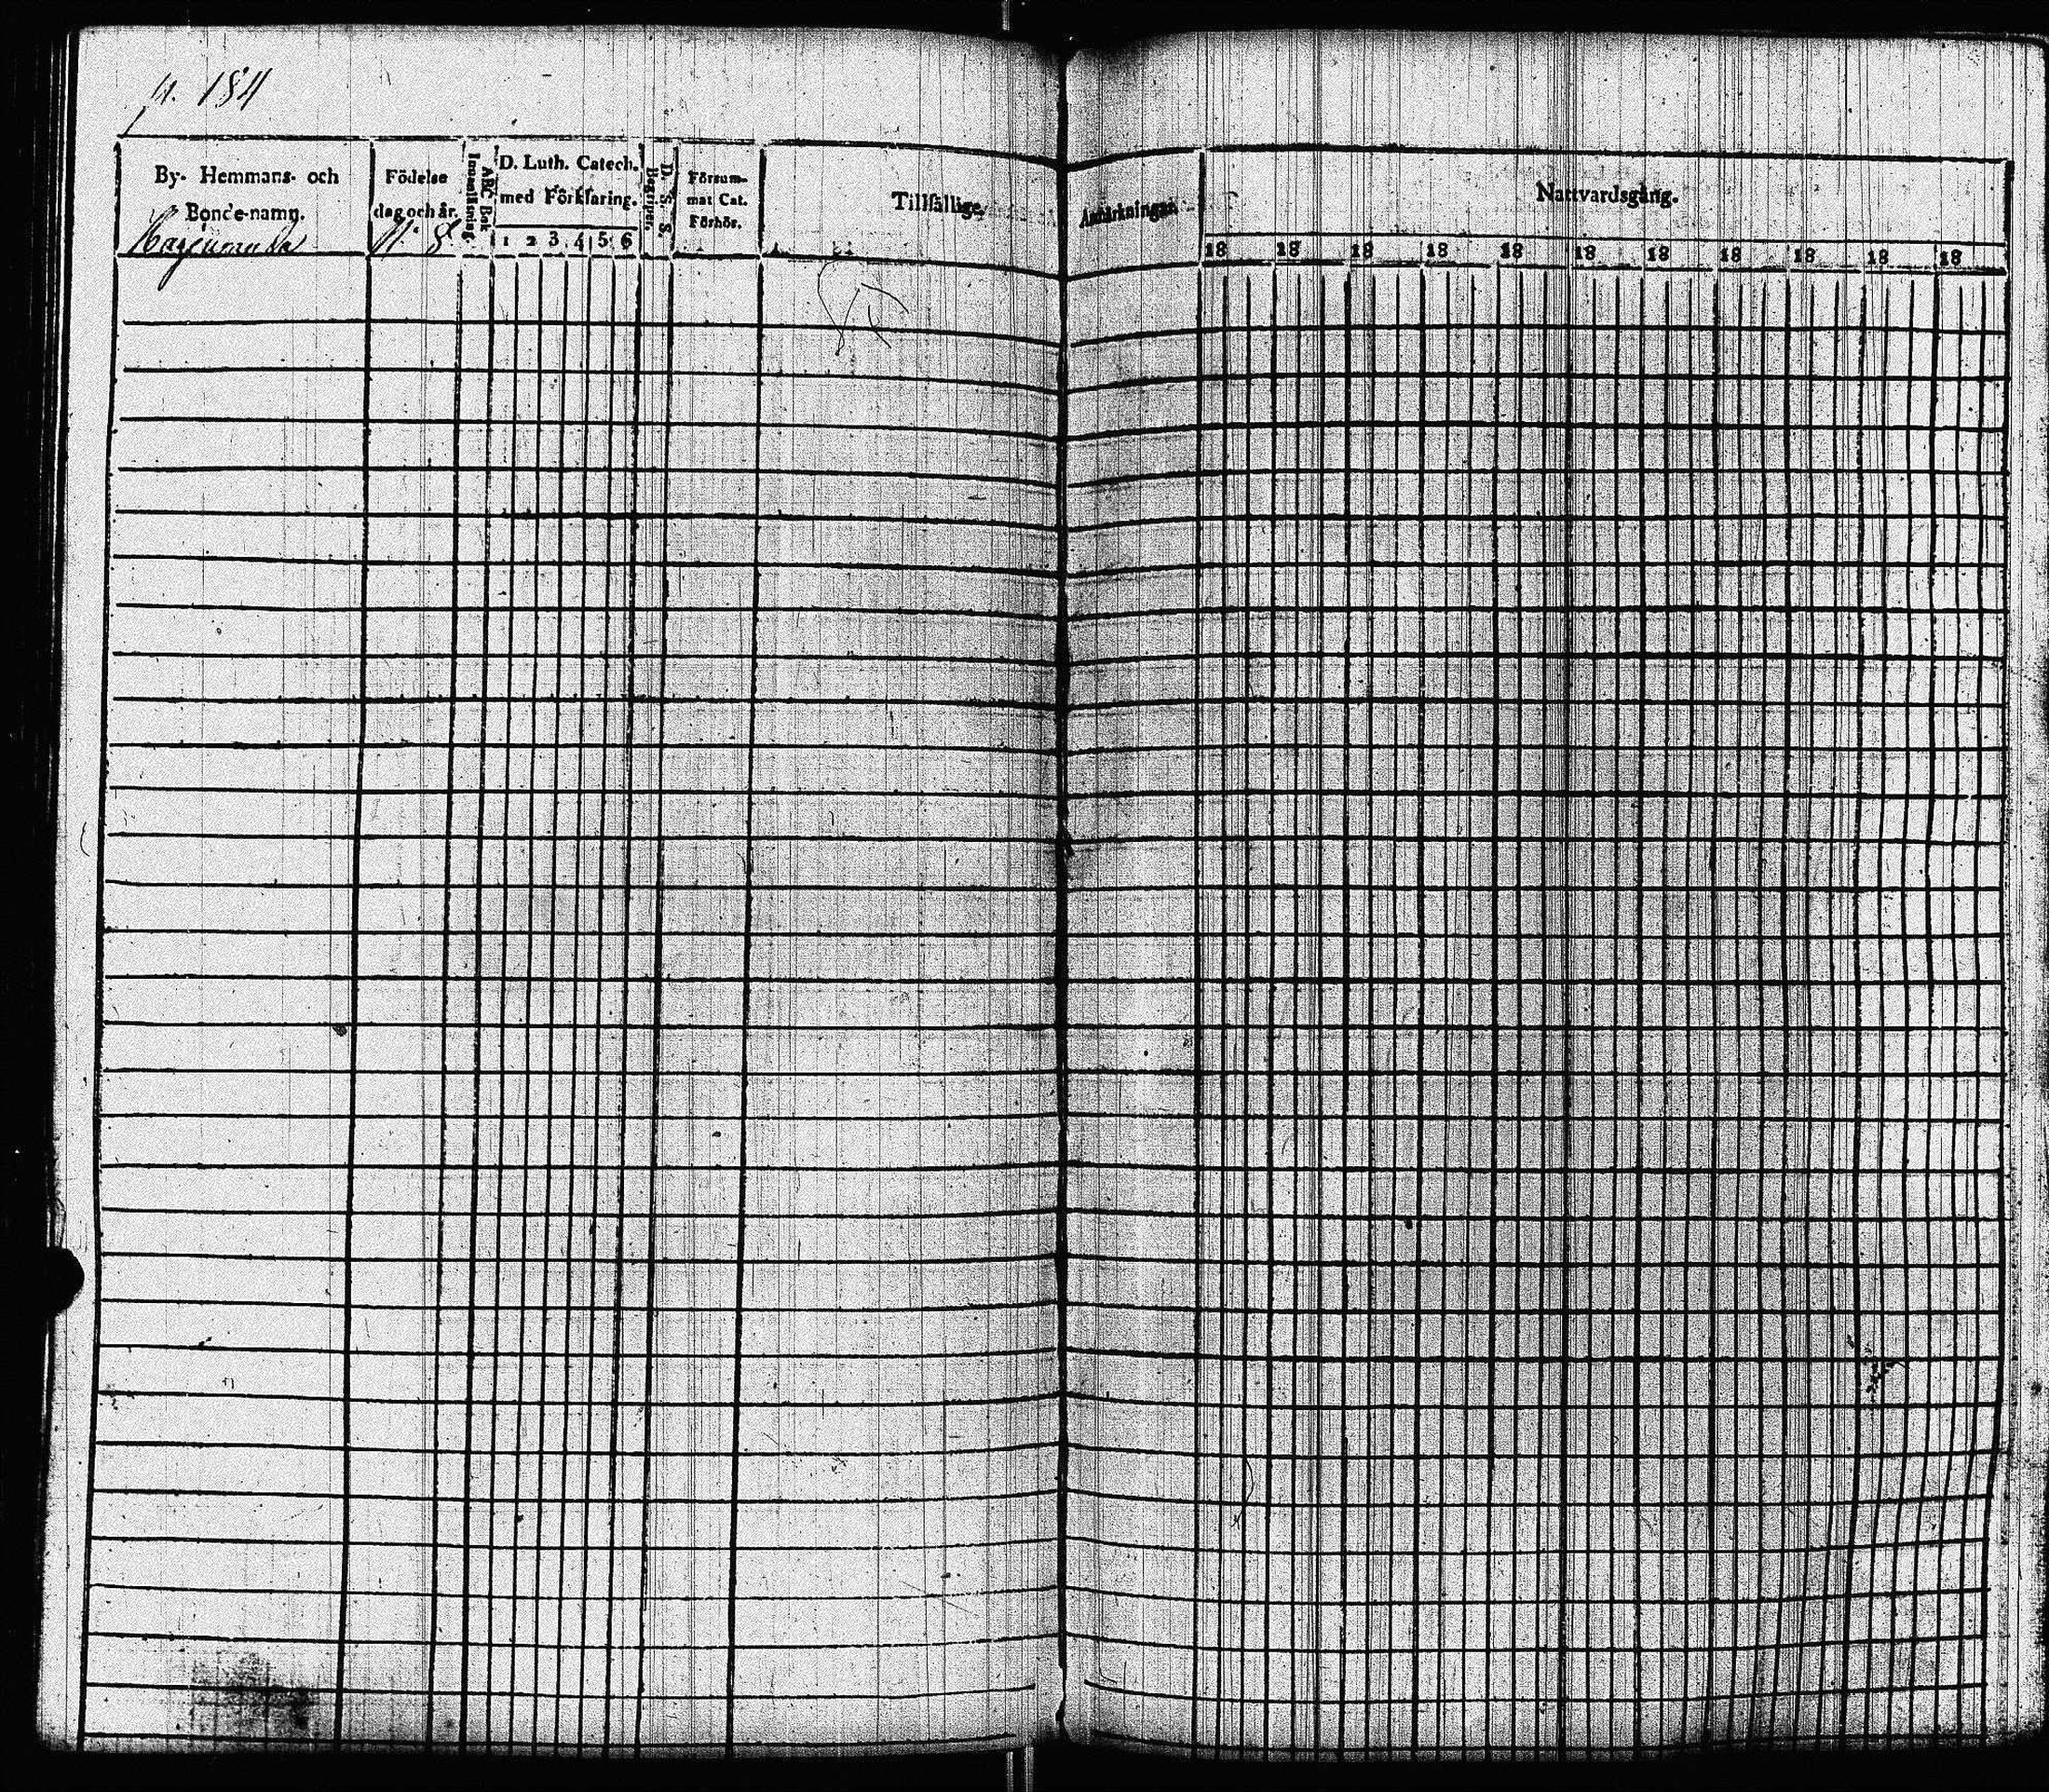 p. 184
By- Hemmans- och
Bonde-namn.
Födelse
dag och år.
Innanläsning.
ABC Bok
D. Luth. Catech.
med Förklaring.
1 2 3 4 5 6
Begriper.
D. S. S.
Försum-
mat Cat.
Förhör.
Tillfällige
Anmärkningar.
Nattvardsgång.
N:o 8
18 18 18 18 18 18 18 18 18 18 18